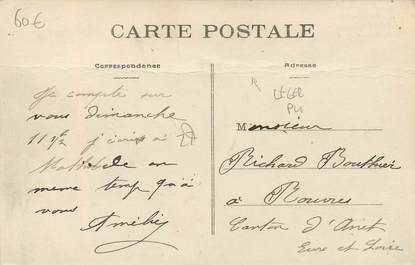 60€
CARTE POSTALE
Correspondance
Adresse
Je compte sur
vous dimanche
11 1/2 j'écris à
Mathilde en
meme temp qu'à
vous
Amélie
LEGER
PLI
Monsieur
Richard Bouthier
à Rouvres
Canton d'Anet
Eure et Loire